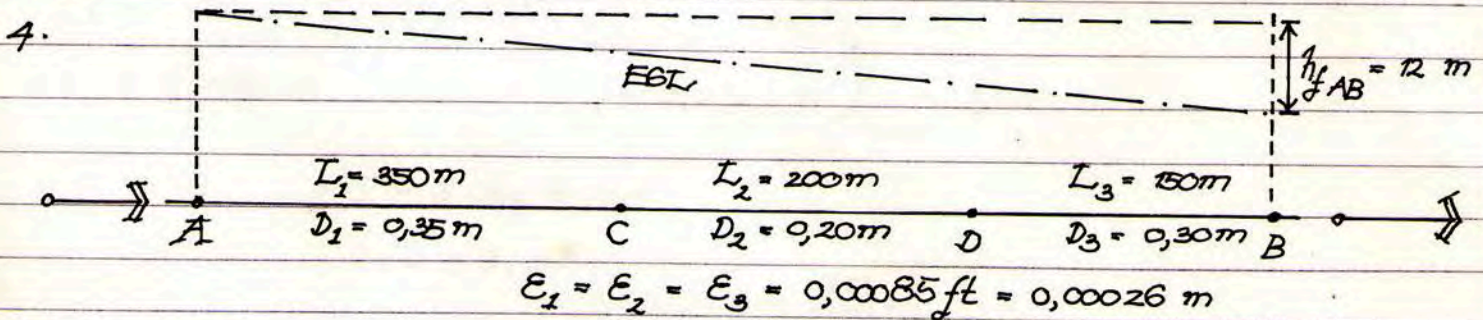 4.
EGL
h_f AB = 12 m
L₁ = 350 m
L₂ = 200 m
L₃ = 150 m
A
D₁ = 0,35 m
C
D₂ = 0,20 m
D
D₃ = 0,30 m
B
Ɛ₁ = Ɛ₂ = Ɛ₃ = 0,00085 ft = 0,00026 m